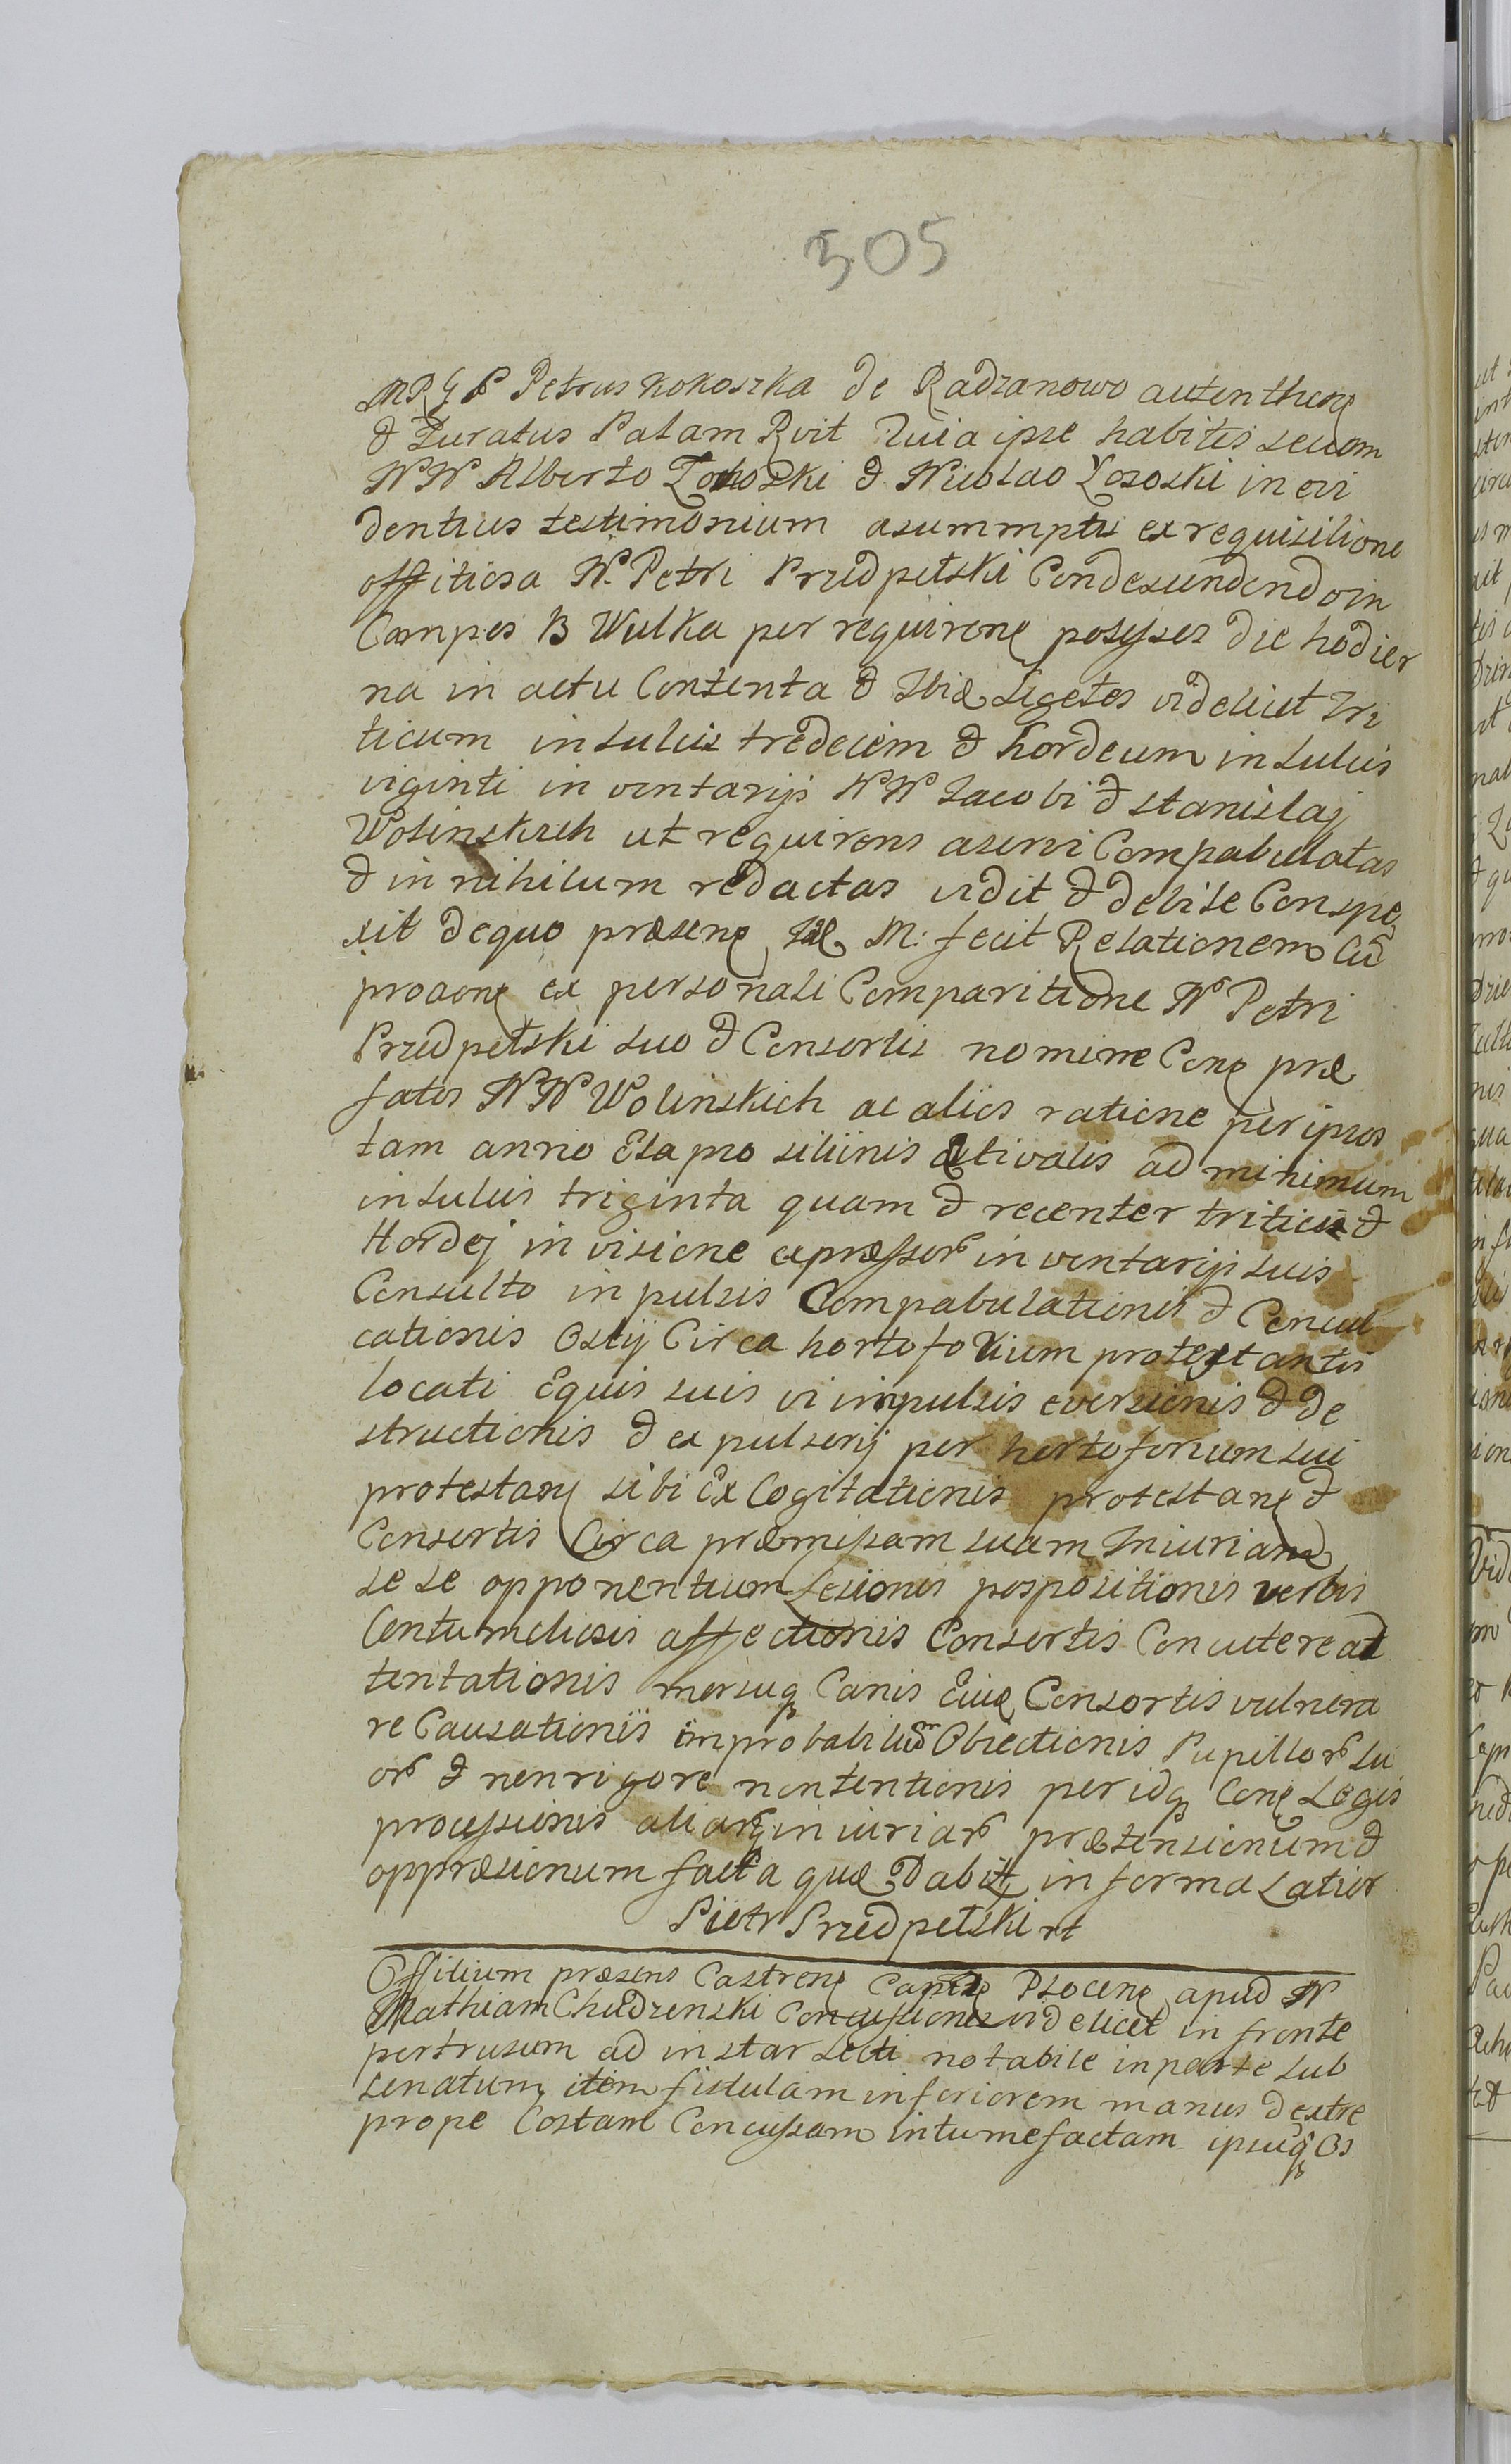 305
MRGP Petrus Kokoszka de Radzanowo autenthenꝭ
& Juratus Palam Rvit Quia ipse habitis secum
NN Alberto & Nicolao Łososki in evi
dentius testimonium asummptis ex requisitione
offitiosa N. Petri Przedpełski Condesundendo in
Campos B Wulka per requirenꝭ posesses die hodier
na in actu Contenta & Ibiꝗ segetes videlicet Tri
ticum in sulcis tredecim & hordeum in sulcis
viginti in ventarijs NN Jacobi & Stanislaj
Wolinskich ut requirens aserui Compabulatas
& in nihilum redactas vidit & debite Conspe
xit de quo præsenꝭ M: fecit Relationem Cū
proaonꝭ ex personali Comparitione N Petri
Przedpełski suo & Consortis nomine Conꝭ præ
fatos NN Wolinskich ac alios ratione per ipsos
tam anno Elapso siliinis Æstivalis ad minimum
in sulcis triginta quam & recenter tritici &
Hordej in visione expressor in ventarijs suis
Consulto in pulsis Compabulationis & Concul
cationis Ostij Circa hortoforium protestantis
locati Equis suis vi impulsis eversionis & de
structionis & ex pulsenij per hortoforium sui
protestanꝭ sibi Ex Cogitationis protestanꝭ &
Consortis Circa præmissam suam Iniuriam
se se opponentium Lesionis pospositionis verbis
Contumeliosis affectionis Consortis Concutere at
tentationis morsuꝗ Canis Eiuꝗ Consortis vulnera
re Causationis improbabilium Obiectionis Pupillor su
or & non rigore nontentionis per idꝗ Conꝭ Legis
processionis aliarꝗ iniuriar prætensionum &
oppræsionum facta quæ Dabit in forma Latior
Piotr Przedpełski rt
Offitium præsens Castrenꝭ Capitle Plocenꝭ apud N
Mathiam Chudzenski Concussiones videlicet in fronte
pertrusum ad instar secti notabile in parte sub
senatum item fistulam inferiorem manus dextre
prope Costam Concussam intumefactam ipsuꝗ Os